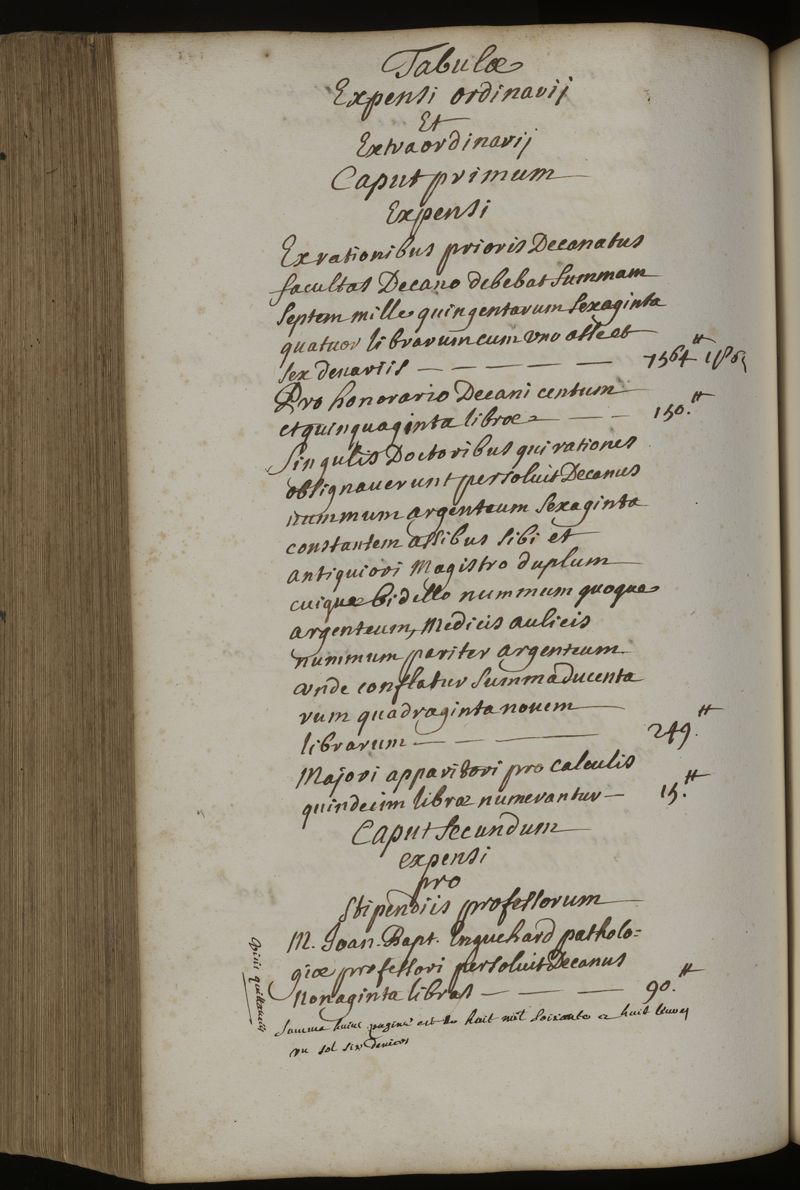 Tabulæ
Expensi ordinarij
Et
Extraordinarij
Caput primum
Expensi
Ex rationibus prioris Decanatus
facultas Decano debebat summam
septem mille quingentarum sexaginta
quatuor librarum cum vno asse et
sex denariis — — — — — 7564.tt 1s 6d
Pro honorario Decani centum
et quinquaginta libræ — — — 150.tt
Singulis Doctoribus qui rationes
obsignauerunt persoluit Decanus
nummum argenteum sexaginta
constantem assibus sibi et
antiquiori Magistro duplum
cuique bidello nummum quoque
argenteum, Medicis aulicis
nummum pariter argenteum
vnde conflatur summa ducenta
rum quadraginta nouem
librarum — — — — 249.tt
Majori apparitori pro calculis
quindecim libræ numerantur — 15.tt
Caput secundum
expensi
pro
Stipendiis professorum
M. Joan. Bapt. Enguehard patholo=
giæ professori persoluit Decanus
nonaginta libras — — — 90.tt
quittance
Summa huius paginæ est huit mil soixante & huit liures
vn sol six deniers